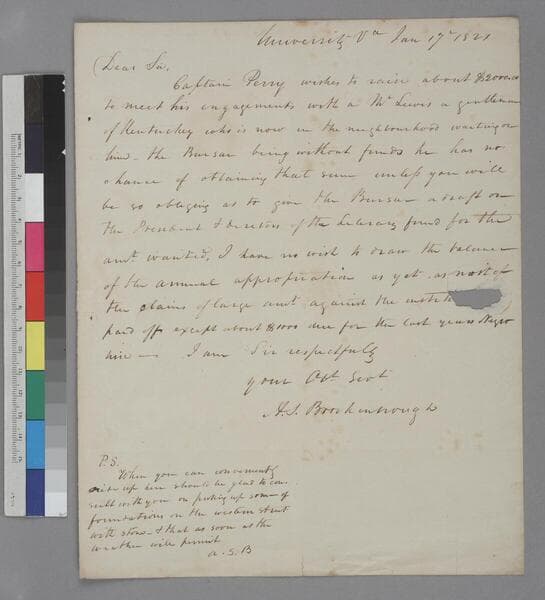 University Va Jan 17th 1821
Dear Sir,
Captain Perry wishes to raise about $2000.00
to meet his engagements with a Mr Lewis a gentleman
of Kentuckey who is now in the neighbourhood waiting on
him — the Bursar being without funds he has no
chance of obtaining that sum unless you will
be so obliging as to give the Bursar a draft on
the President & directors of the Literary fund for the
amt. wanted, I have no wish to draw the balance
of the annual appropriation as yet as most of
the claims of large amt against the instit
paid off except about $1000 due for the last years Negro
hire — I am Sir respectfully
your Obt Sevt
A. S. Brockenbrough
P.S.
When you can conveniently
ride up here should be glad to con
sult with you on picking up some of
foundations on the western street
with stone — & that as soon as the
weather will permit
A. S. B